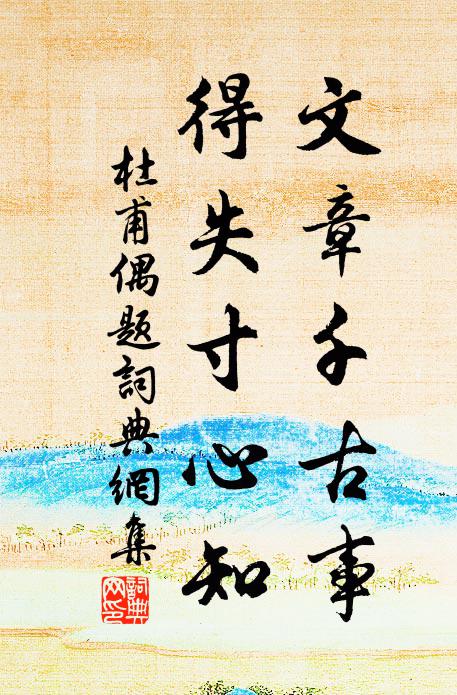 文章千古事
得失寸心知
杜甫偶題詞典網集
詞典